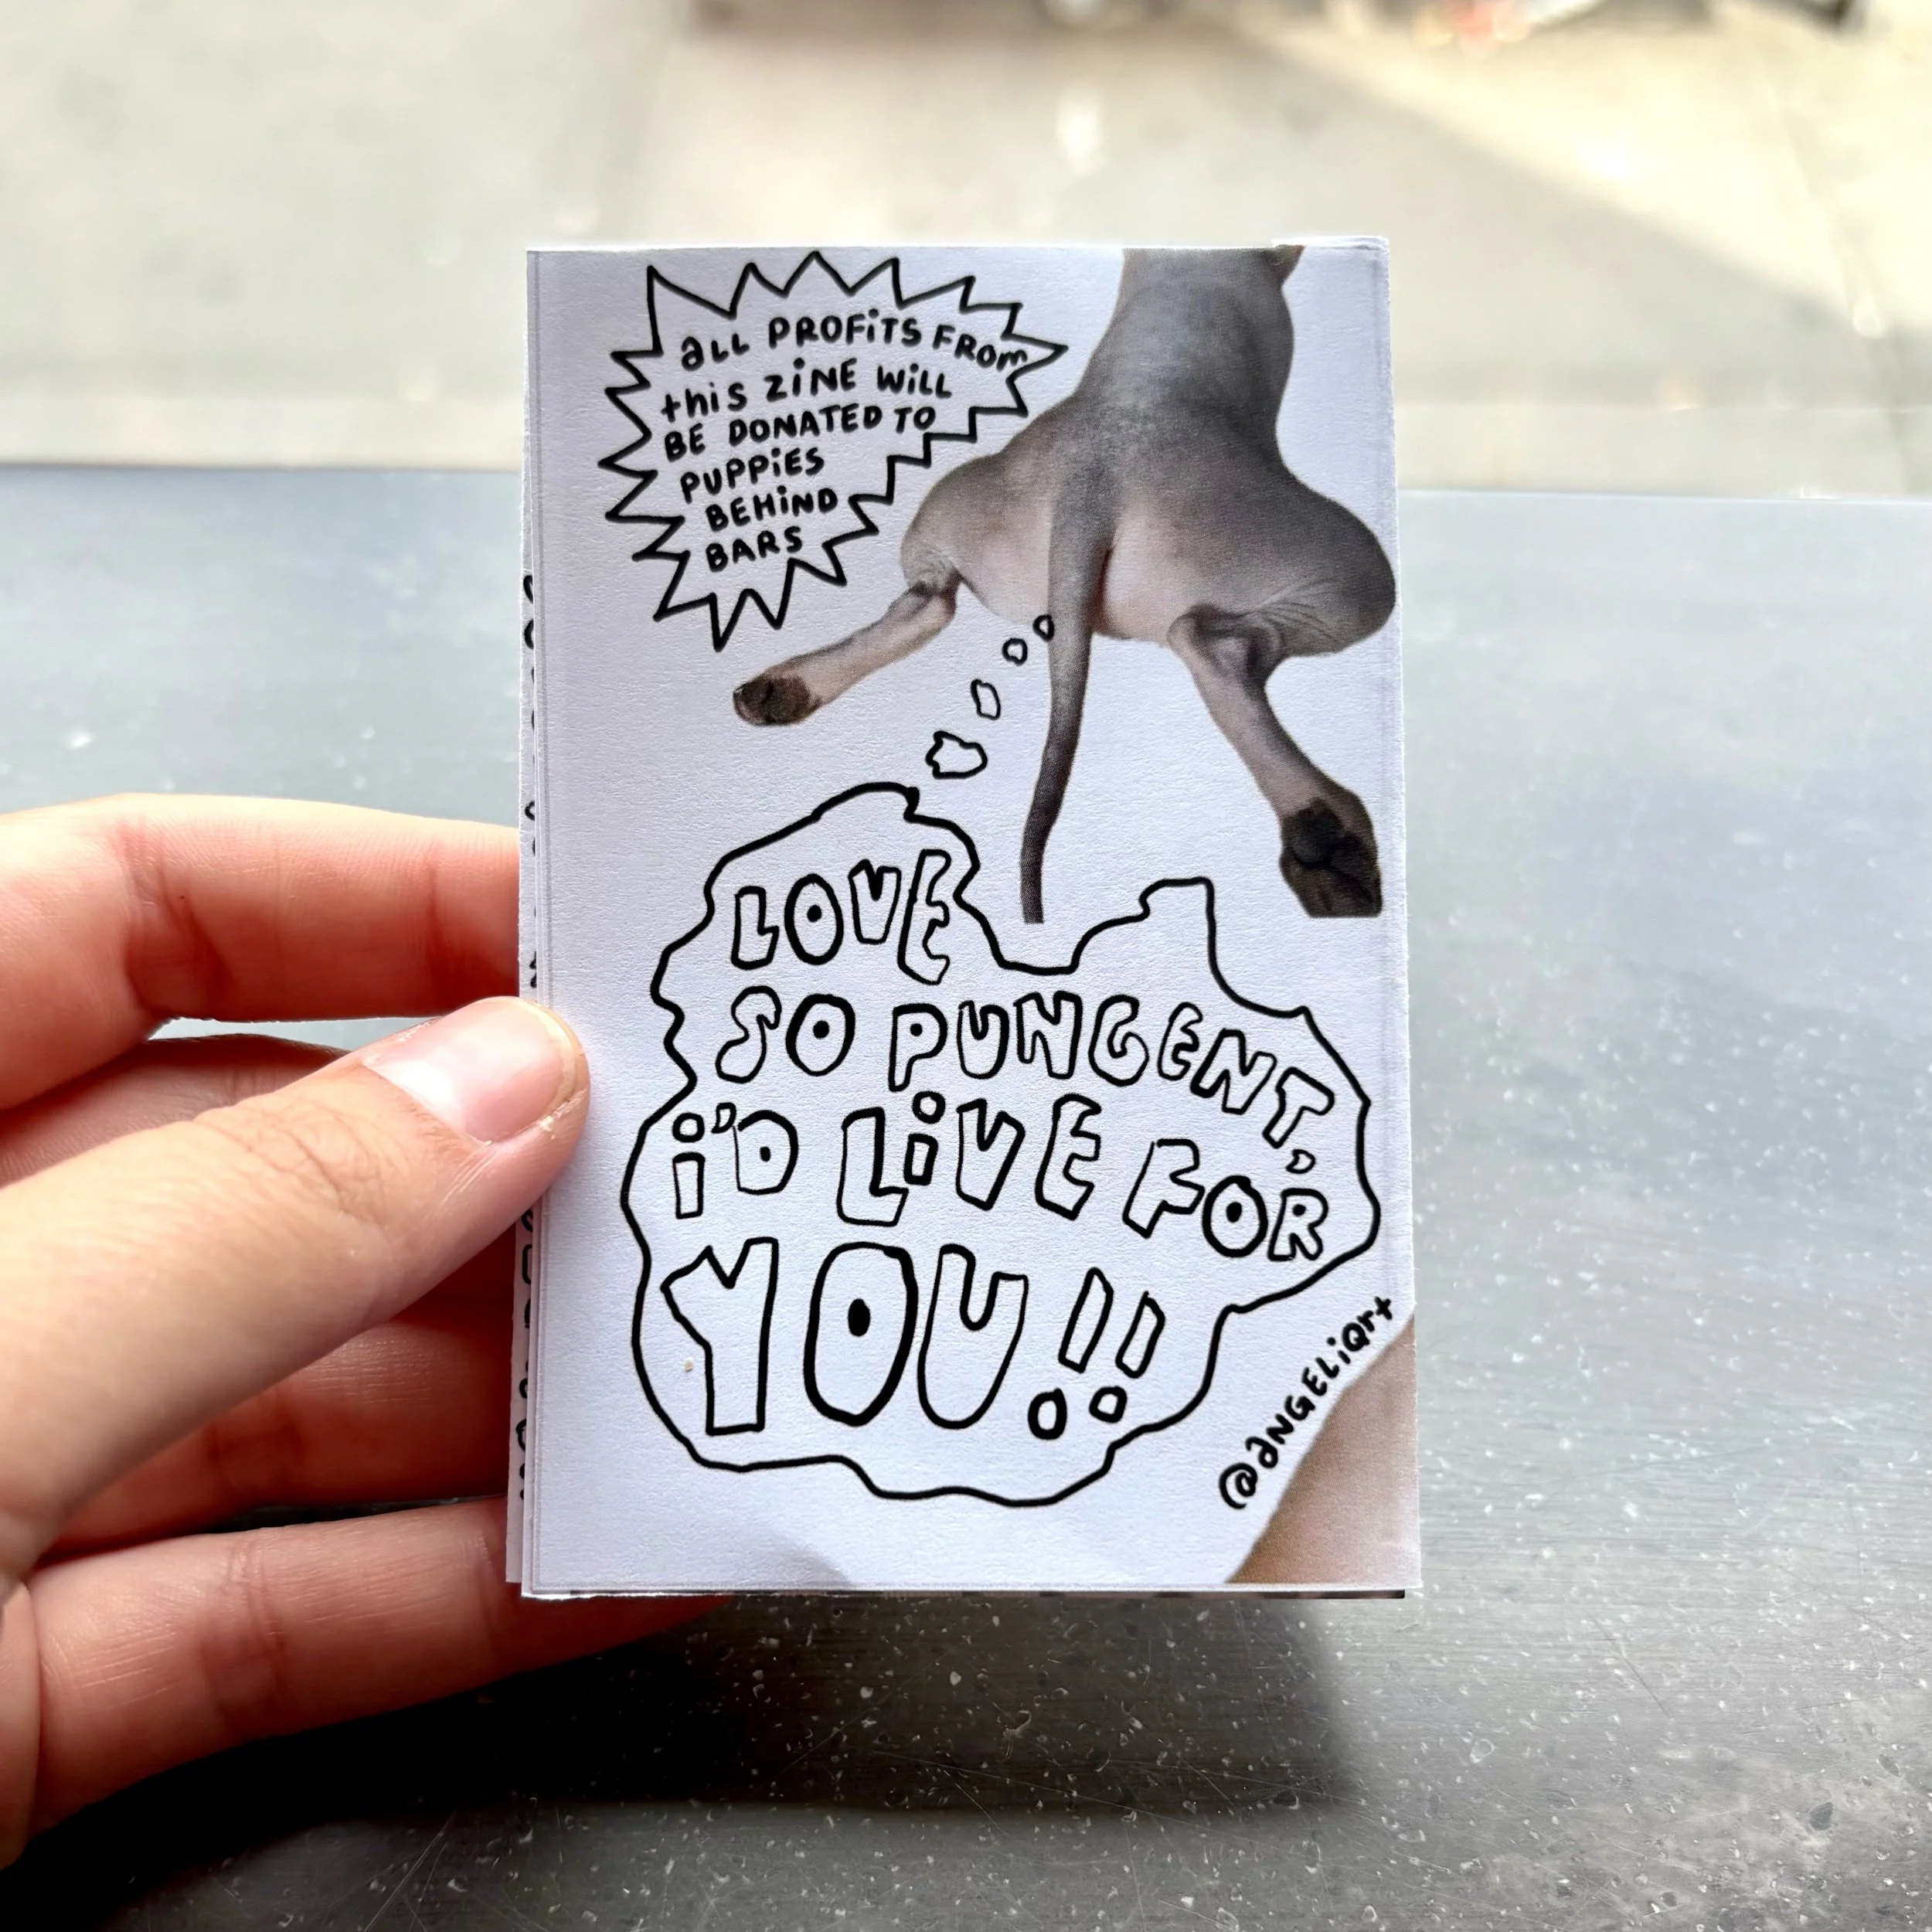 aLL PROFiTS FROm
thiS ZiNE WiLL
BE DONATED TO
PUPPiES
BEHiND
BARS
LOVE
SO PUNGENT,
i'D LiVE FOR
YOU!!
@aNGELiQrt